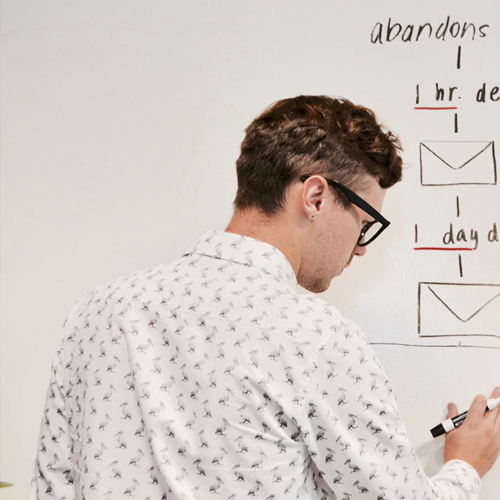 abandons
1 hr. de
1 day d